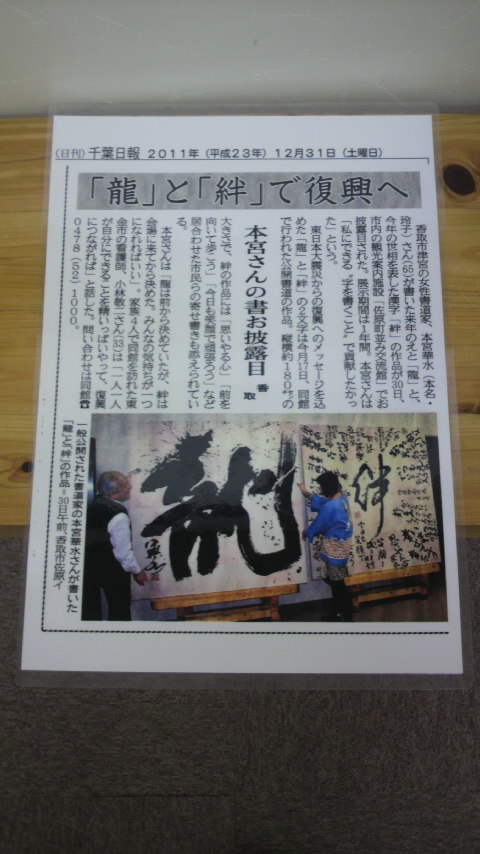 (日刊) 千葉日報 2011年(平成23年) 12月31日(土曜日)
「龍」と「絆」で復興へ
本宮さんの書お披露目
香取
香取市津宮の女性書道家、本宮華水(本名・
玲子)さん(65)が書いた来年のえと「龍」と、
今年の世相を表した漢字「絆」の作品が30日、
市内の観光案内施設「佐原町並み交流館」でお
披露目された。展示期間は1年間。本宮さんは
「私にできる〝字を書くこと〟で貢献したかっ
た」という。
東日本大震災からの復興へのメッセージを込
めた「龍」と「絆」の2文字は今月17日、同館
で行われた公開書道の作品。縦横約180㌢の
大きさで、絆の作品には「思いやる心」「前を
向いて歩こう」「今日も笑顔で頑張ろう」など
居合わせた市民らの寄せ書きも添えられてい
る。
本宮さんは「龍は前から決めていたが、絆は
会場に来てから決めた。みんなの気持ちが一つ
になればいい」。家族4人で同館を訪れた東
金市の看護師、小林敬二さん(33)は「一人一人
が自分にできることを精いっぱいやって、復興
につながれば」と話した。問い合わせは同館☎
0478(52)1000。
龍
絆
一般公開された書道家の本宮華水さんが書いた
「龍」と「絆」の作品=30日午前、香取市佐原イ